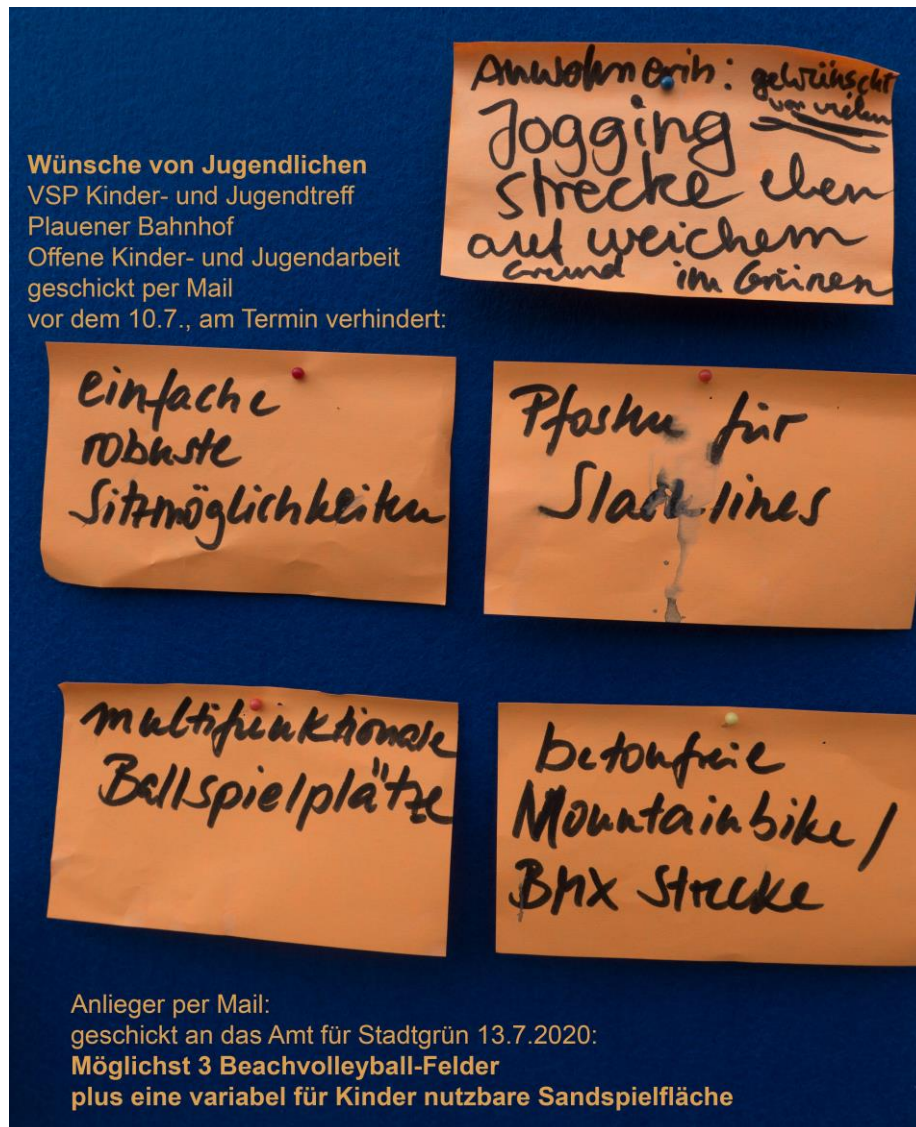 Anwohnerin: gewünscht
von vielen
Jogging
strecke eben
auf weichem
Grund im Grünen
Wünsche von Jugendlichen
VSP Kinder- und Jugendtreff
Plauener Bahnhof
Offene Kinder- und Jugendarbeit
geschickt per Mail
vor dem 10.7., am Termin verhindert:
einfache
robuste
Sitzmöglichkeiten
Pfosten für
Slacklines
multifunktionale
Ballspielplätze
betonfreie
Mountainbike/
BMX Strecke
Anlieger per Mail:
geschickt an das Amt für Stadtgrün 13.7.2020:
Möglichst 3 Beachvolleyball-Felder
plus eine variabel für Kinder nutzbare Sandspielfläche